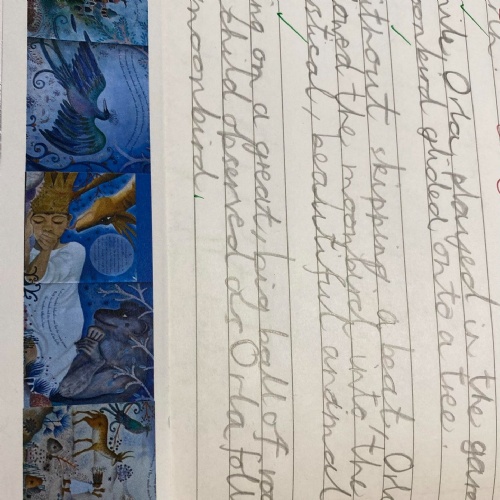 hile, Orla played in the gar
oonbird glided onto a tree.
ithout skipping a beat, Orl
oned the moonbird into the
stical, beautiful and ma
ing on a great, big ball of
child observed as Orla foll
moonbird.